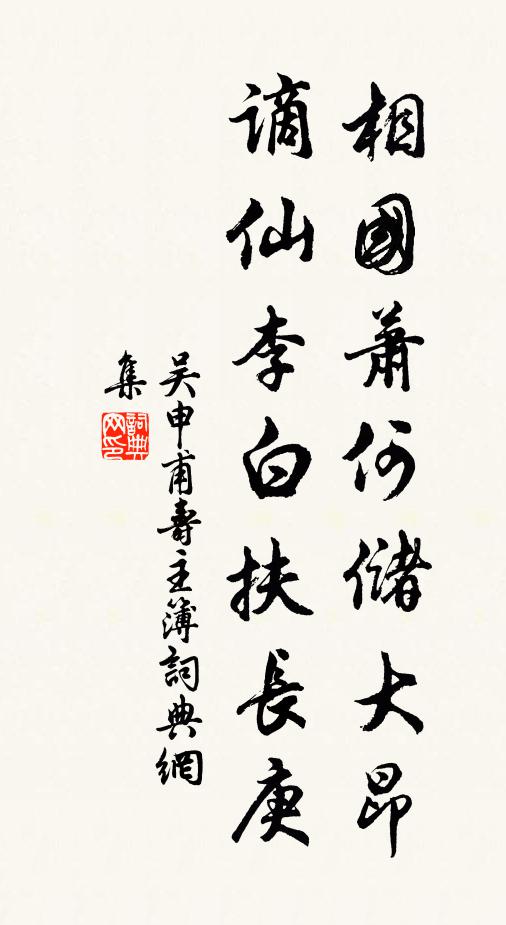 相國蕭何儲大昂
謫仙李白挾長庚
吴申甫壽主簿詞典網
集
詞典網印